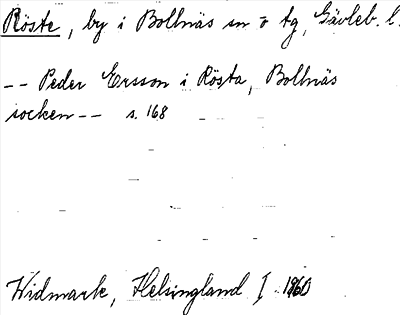 Röste, by i Bollnäs sn o tg, Gävleb. l.
-- Peder Ersson i Rösta, Bollnäs
socken -- s. 168
Widmark, Helsingland I 1860